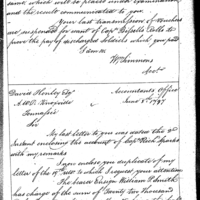 same, which will so placed under examination
and the result communicated to you
Your last transmission of Vouchers
are suspended for want of Capt Rissells Rolls to
prove the pay of discharged Soldiers which you paid
I am &c
Wm Simmons
Acct
David Henley Esqr
A.W.D. Knoxville
Tennessee
Accountants Office
June 8th 1797
Sir
My last letter to you was under the 3d
Instant enclosing the amount of Capt Rich Sparks
with my remarks
I now enclose you duplicate of my
letter of the 19th to which I request your attention
The bearer Ensign William W Smith
has charge of the sum of Twenty two thousand